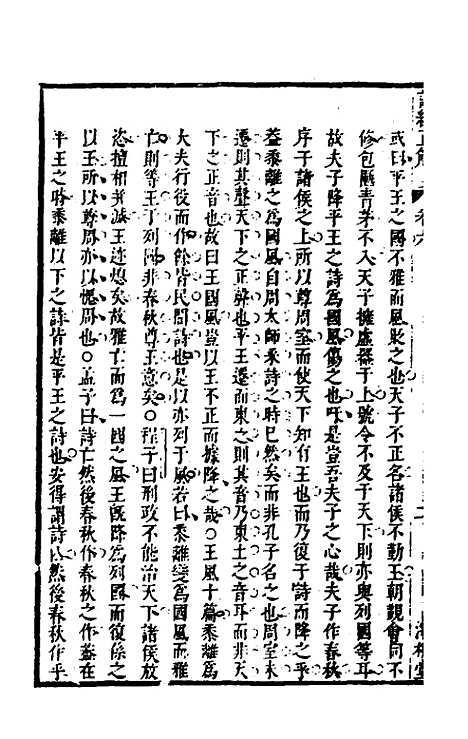 或曰平王之國不雅而風眾之也天子不正名諸侯不勤王朝覲會同不
修包匭青茅不入天子擁虛器于上號令不及于天下則亦與列國等耳
故夫子降平王之詩為國風傷之也吁是豈吾夫子之心哉夫子作春秋
序子諸侯之上所以尊周室而使天下知有王也而乃復于詩而降之乎
蓋黍離之為國風自周太師釆詩之時巳然矣而非孔子名之也周室未
遷則其聲天下之正聲也平王遷而東之則其音乃東土之音耳而非天
下之正音也故曰王國風豈以王不正而據降之哉○王風十篇黍離為
大夫行役而作餘皆民間詩也是以亦列于風若曰黍離變為國風而雅
亡則等王于列國非春秋尊王意矣○程子曰刑政不能治天下諸侯放
恣擅相并滅王迹熄矣故雅亡而為一國之風王旣降為列國而復係之
以王所以尊周亦以愧周也○孟子曰詩亡然後春秋作春秋之作蓋在
平王之時黍離以下之詩皆是平王之詩也安得謂詩亡然後春秋作乎
詩經正解
卷六